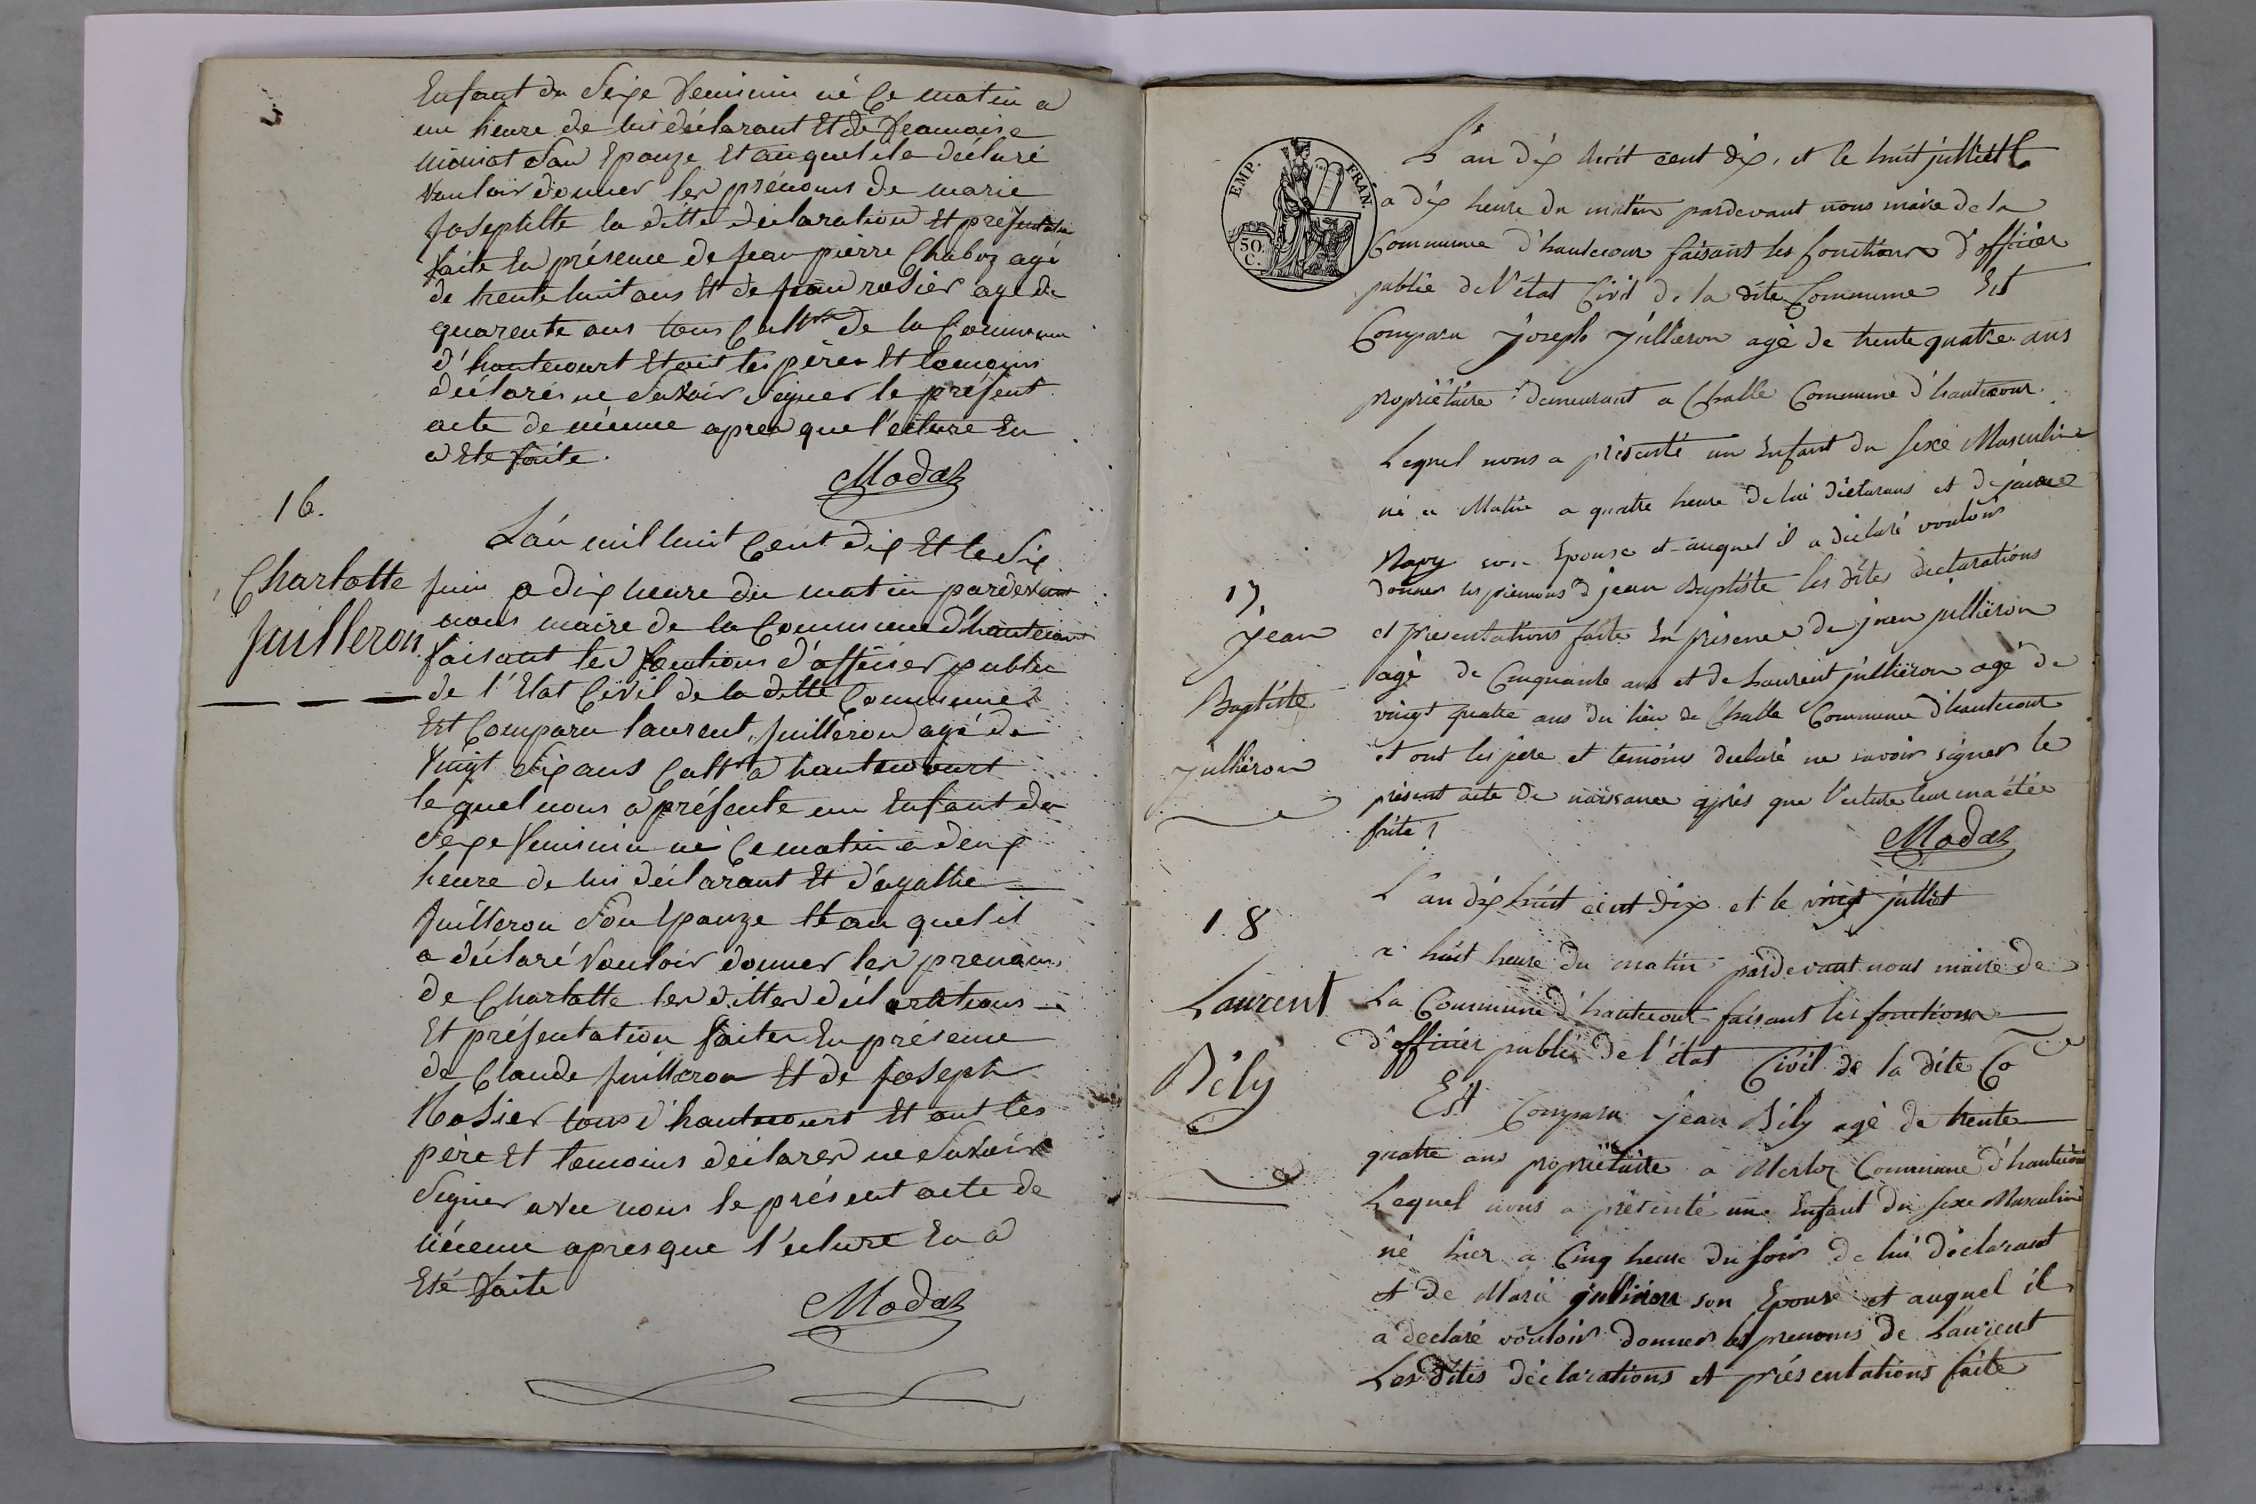 Enfant du Sexe feminin né Ce matin a
un heure de lui déclarant Et de
son Epouze Et auquel il a déclaré
vouloir donner les prénoms de marie
la ditte déclaration Et présentation
faite En présence de Jean pierre Chaboz agé
de trente huit ans Et de jean rosier agé de
quarente ans tous Cult.rs de la Commune
d'hautecourt Et ont les pères Et temoins
déclarés ne Savoir Signer le présent
acte de après que l'ecture En
a Ete faite.
Modaz
16.
Charlotte
Juilleron
L'an mil huit Cent dix Et le Six
Juin a dix heure du matin pardevant
nous maire de la Commune d'hautecourt
faisant les fonctions d'officier public
de l'Etat Civil de la ditte Commune
Est Comparu laurent Juilleron agé de
Vingt Six ans Cult.r a hautecourt
le quel nous a présenté un Enfant du
Sexe feminin né Ce matin a deux
heure de lui déclarant Et d'agathe
Juilleron Son Epouze Et au quel il
a déclaré Vouloir donner les prenoms
de Charlotte les dittes déclarations
Et présentation faites En présence
de Claude Juilleron Et de Joseph
Rosier tous d'hautecourt Et ont les
père Et temoins déclarés ne Savoir
Signer avec nous le présent acte de
après que l'ecture En a
Eté faite
Modaz
EMP. FRAN.
50.
C.
L'an dix huit cent dix, et le huit julliett
a dix heure du matin pardevant nous maire de la
Commune d'hautecour faisant les fonctions d'officier
public de l'état Civil de la dite Commune Est
Comparu Joseph Jullieron agé de trente quatre ans
propriétaire demeurant a Challe Commune d'hautecour.
Lequel nous a présenté un Enfant du sexe Masculin
né ce Matin a quatre heure de lui déclarans et de
son Epouse et auquel il a déclaré vouloir
donner les prenoms d jean Baptiste les dites declarations
et presentations faite En présence de jullieron
agé de Cinquante ans et de Laurent jullieron agé de
vingt quatre ans du lieu de Challe Commune d'hautecourt
et ont les père et temoins declaré ne savoir signer le
présent acte de naissance après que l'ecture leur en a étée
faite
Modaz
17.
Jean
Baptiste
Jullieron
18
Laurent
Bély
L'an dix huit cent dix et le vingt julliet
a huit heure du matin pardevant nous maire de
La Commune d'hautecourt faisant les fonctions
d'officier public de l'état Civil de la dite Co
Est Comparu Jean Bély agé de trente
quatre ans propriétaire a Merloz Commune d'hautecour
Lequel nous a présenté une Enfant du sexe Masculin
né hier a Cinq heure du soir de lui déclarant
et de Marie jullieron son Epouse et auquel il
a declaré vouloir donner les prenoms de Laurent
Les dites déclarations et présentations faite